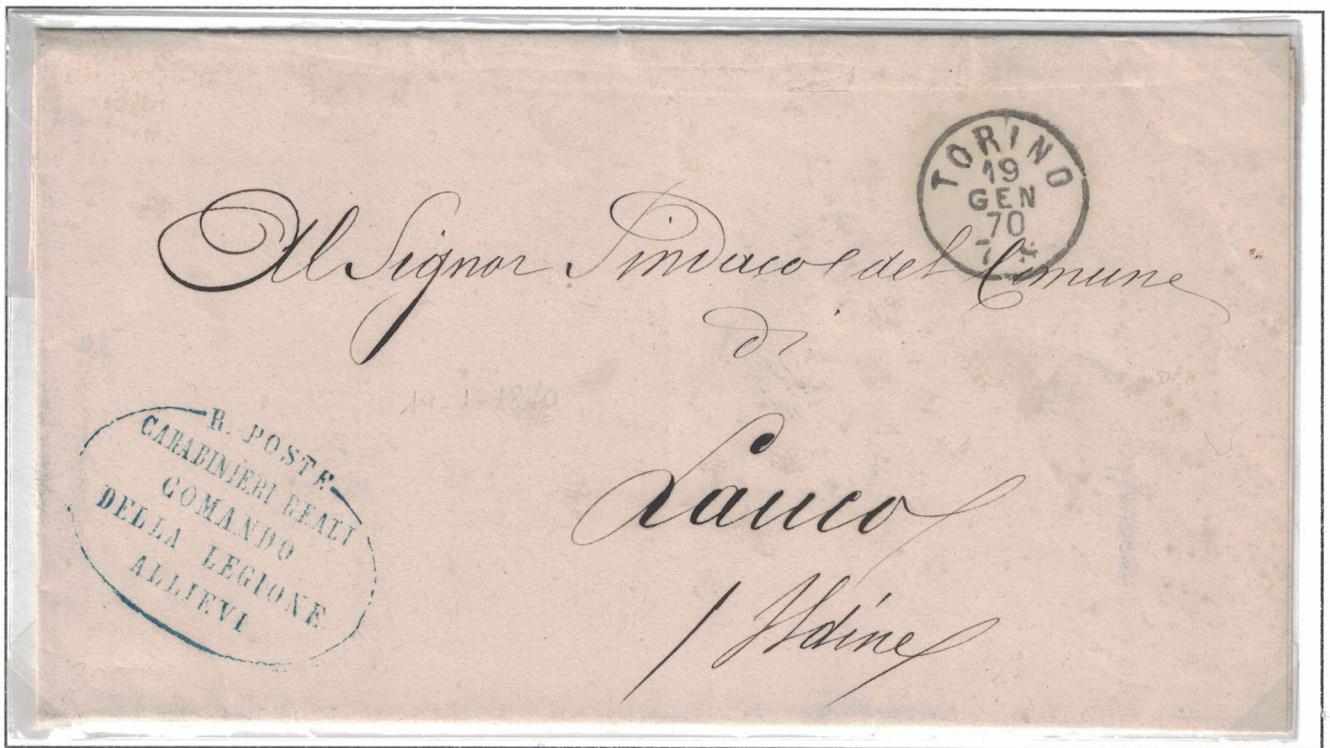 TORINO
19
GEN
70
7
Al Signor Sindaco del Comune
di
Lauco
/ Udine
R. POSTE
CARABINIERI REALI
COMANDO
DELLA LEGIONE
ALLIEVI